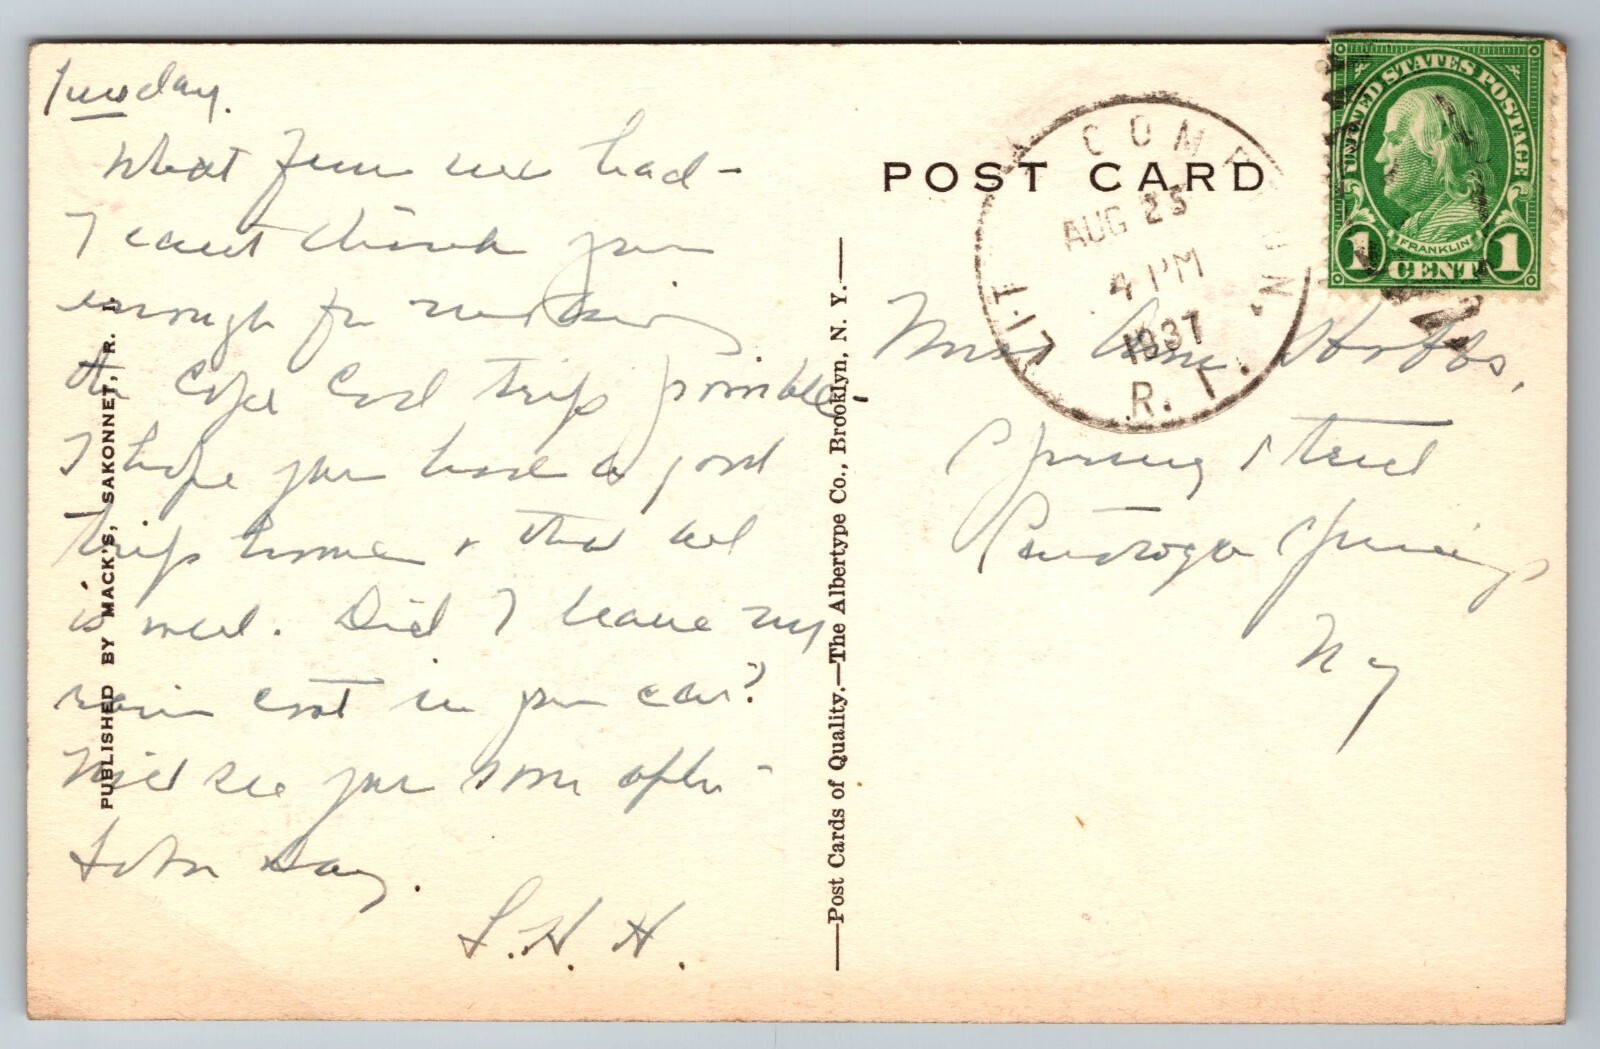 Tuesday.
What fun we had -
I cant thank you
enough for making
the Cape Cod trip possible -
I hope you had a good
trip home & that all
is well. Did I leave my
rain coat in your car?
Will see you soon after
Labor Day.
L. H. H.
PUBLISHED BY MACK'S, SAKONNET, R. I.
—Post Cards of Quality.—The Albertype Co., Brooklyn, N. Y.—
POST CARD
LIT COMP N,
AUG 25
4 PM
1937
R. I.
UNITED STATES POSTAGE
FRANKLIN
1 CENT 1
Miss Hobbs,
Spring Street
Saratoga Springs
N Y